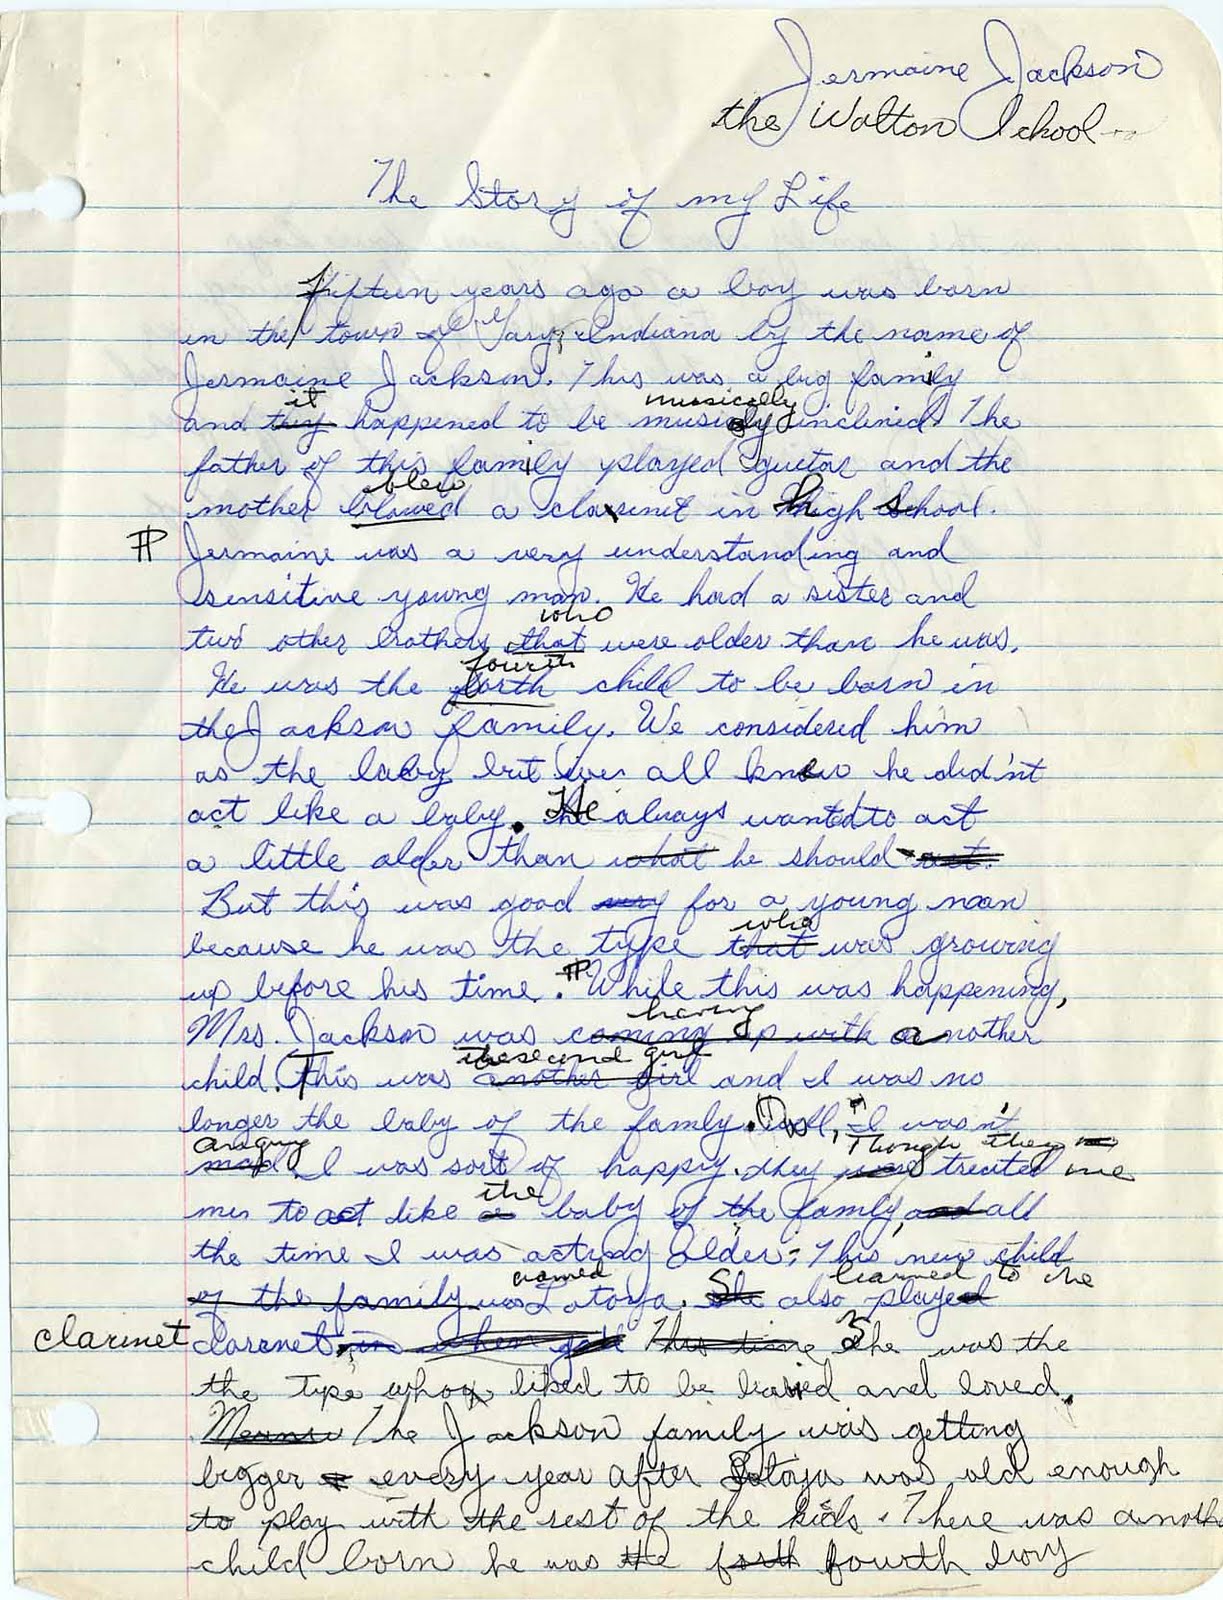 Jermaine Jackson
the Walton School
The Story of my Life
Fifteen years ago a boy was born
in the town of Gary, Indiana by the name of
Jermaine Jackson. This was a big family
it musically
and they happened to be musicly inclined. The
father of this family played guitar and the
blew
mother blowed a clarinet in High School.
¶ Jermaine was a very understanding and
sensitive young man. He had a sister and
who
two other brothers that were older than he was.
fourth
He was the forth child to be born in
the Jackson family. We considered him
as the baby but we all knew he didn't
act like a baby. He always wanted to act
a little older than what he should act.
But this was good very for a young man
who
because he was the type that was growing
up before his time. ¶ While this was happening,
having
Mrs. Jackson was coming up with another
the second girl
child. This was another girl and I was no
longer the baby of the family. Well, I wasn't
angry Though they
mad I was sort of happy. they were treated me
the
me to act like a baby of the family, and all
the time I was acting older; This new child
named learned to
of the family was Latoya. She also played
clarinet clarenet in when This time She was the
the type who liked to be babied and loved.
The Jackson family was getting
bigger every year after Latoya was old enough
to play with the rest of the kids. There was anoth
child born he was the forth fourth boy